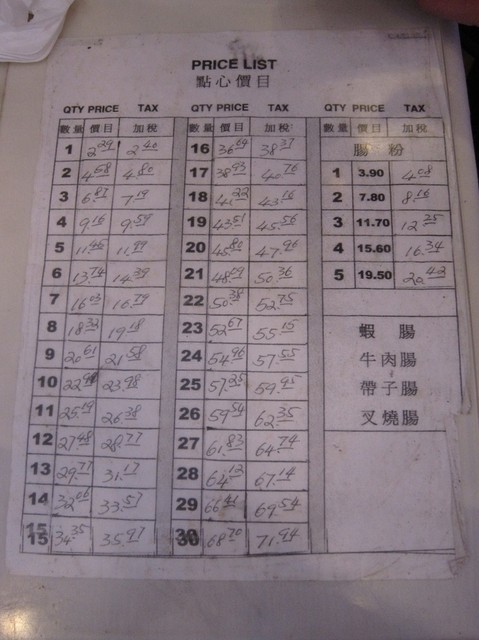 PRICE LIST
點心價目
QTY PRICE TAX QTY PRICE TAX QTY PRICE TAX
數量 價目 加稅 數量 價目 加稅 數量 價目 加稅
1 2.29 2.40 16 36.64 38.37 腸粉
2 4.58 4.80 17 38.93 40.76 1 3.90 4.08
3 6.87 7.19 18 41.22 43.16 2 7.80 8.16
4 9.16 9.59 19 43.51 45.56 3 11.70 12.25
5 11.45 11.99 20 45.80 47.96 4 15.60 16.34
6 13.74 14.39 21 48.09 50.36 5 19.50 20.42
7 16.03 16.79 22 50.38 52.75
8 18.32 19.18 23 52.67 55.15 蝦腸
9 20.61 21.58 24 54.96 57.55 牛肉腸
10 22.90 23.98 25 57.25 59.95 帶子腸
11 25.19 26.38 26 59.54 62.35 叉燒腸
12 27.48 28.77 27 61.83 64.74
13 29.77 31.17 28 64.12 67.14
14 32.06 33.57 29 66.41 69.54
15 34.35 35.97 30 68.70 71.94